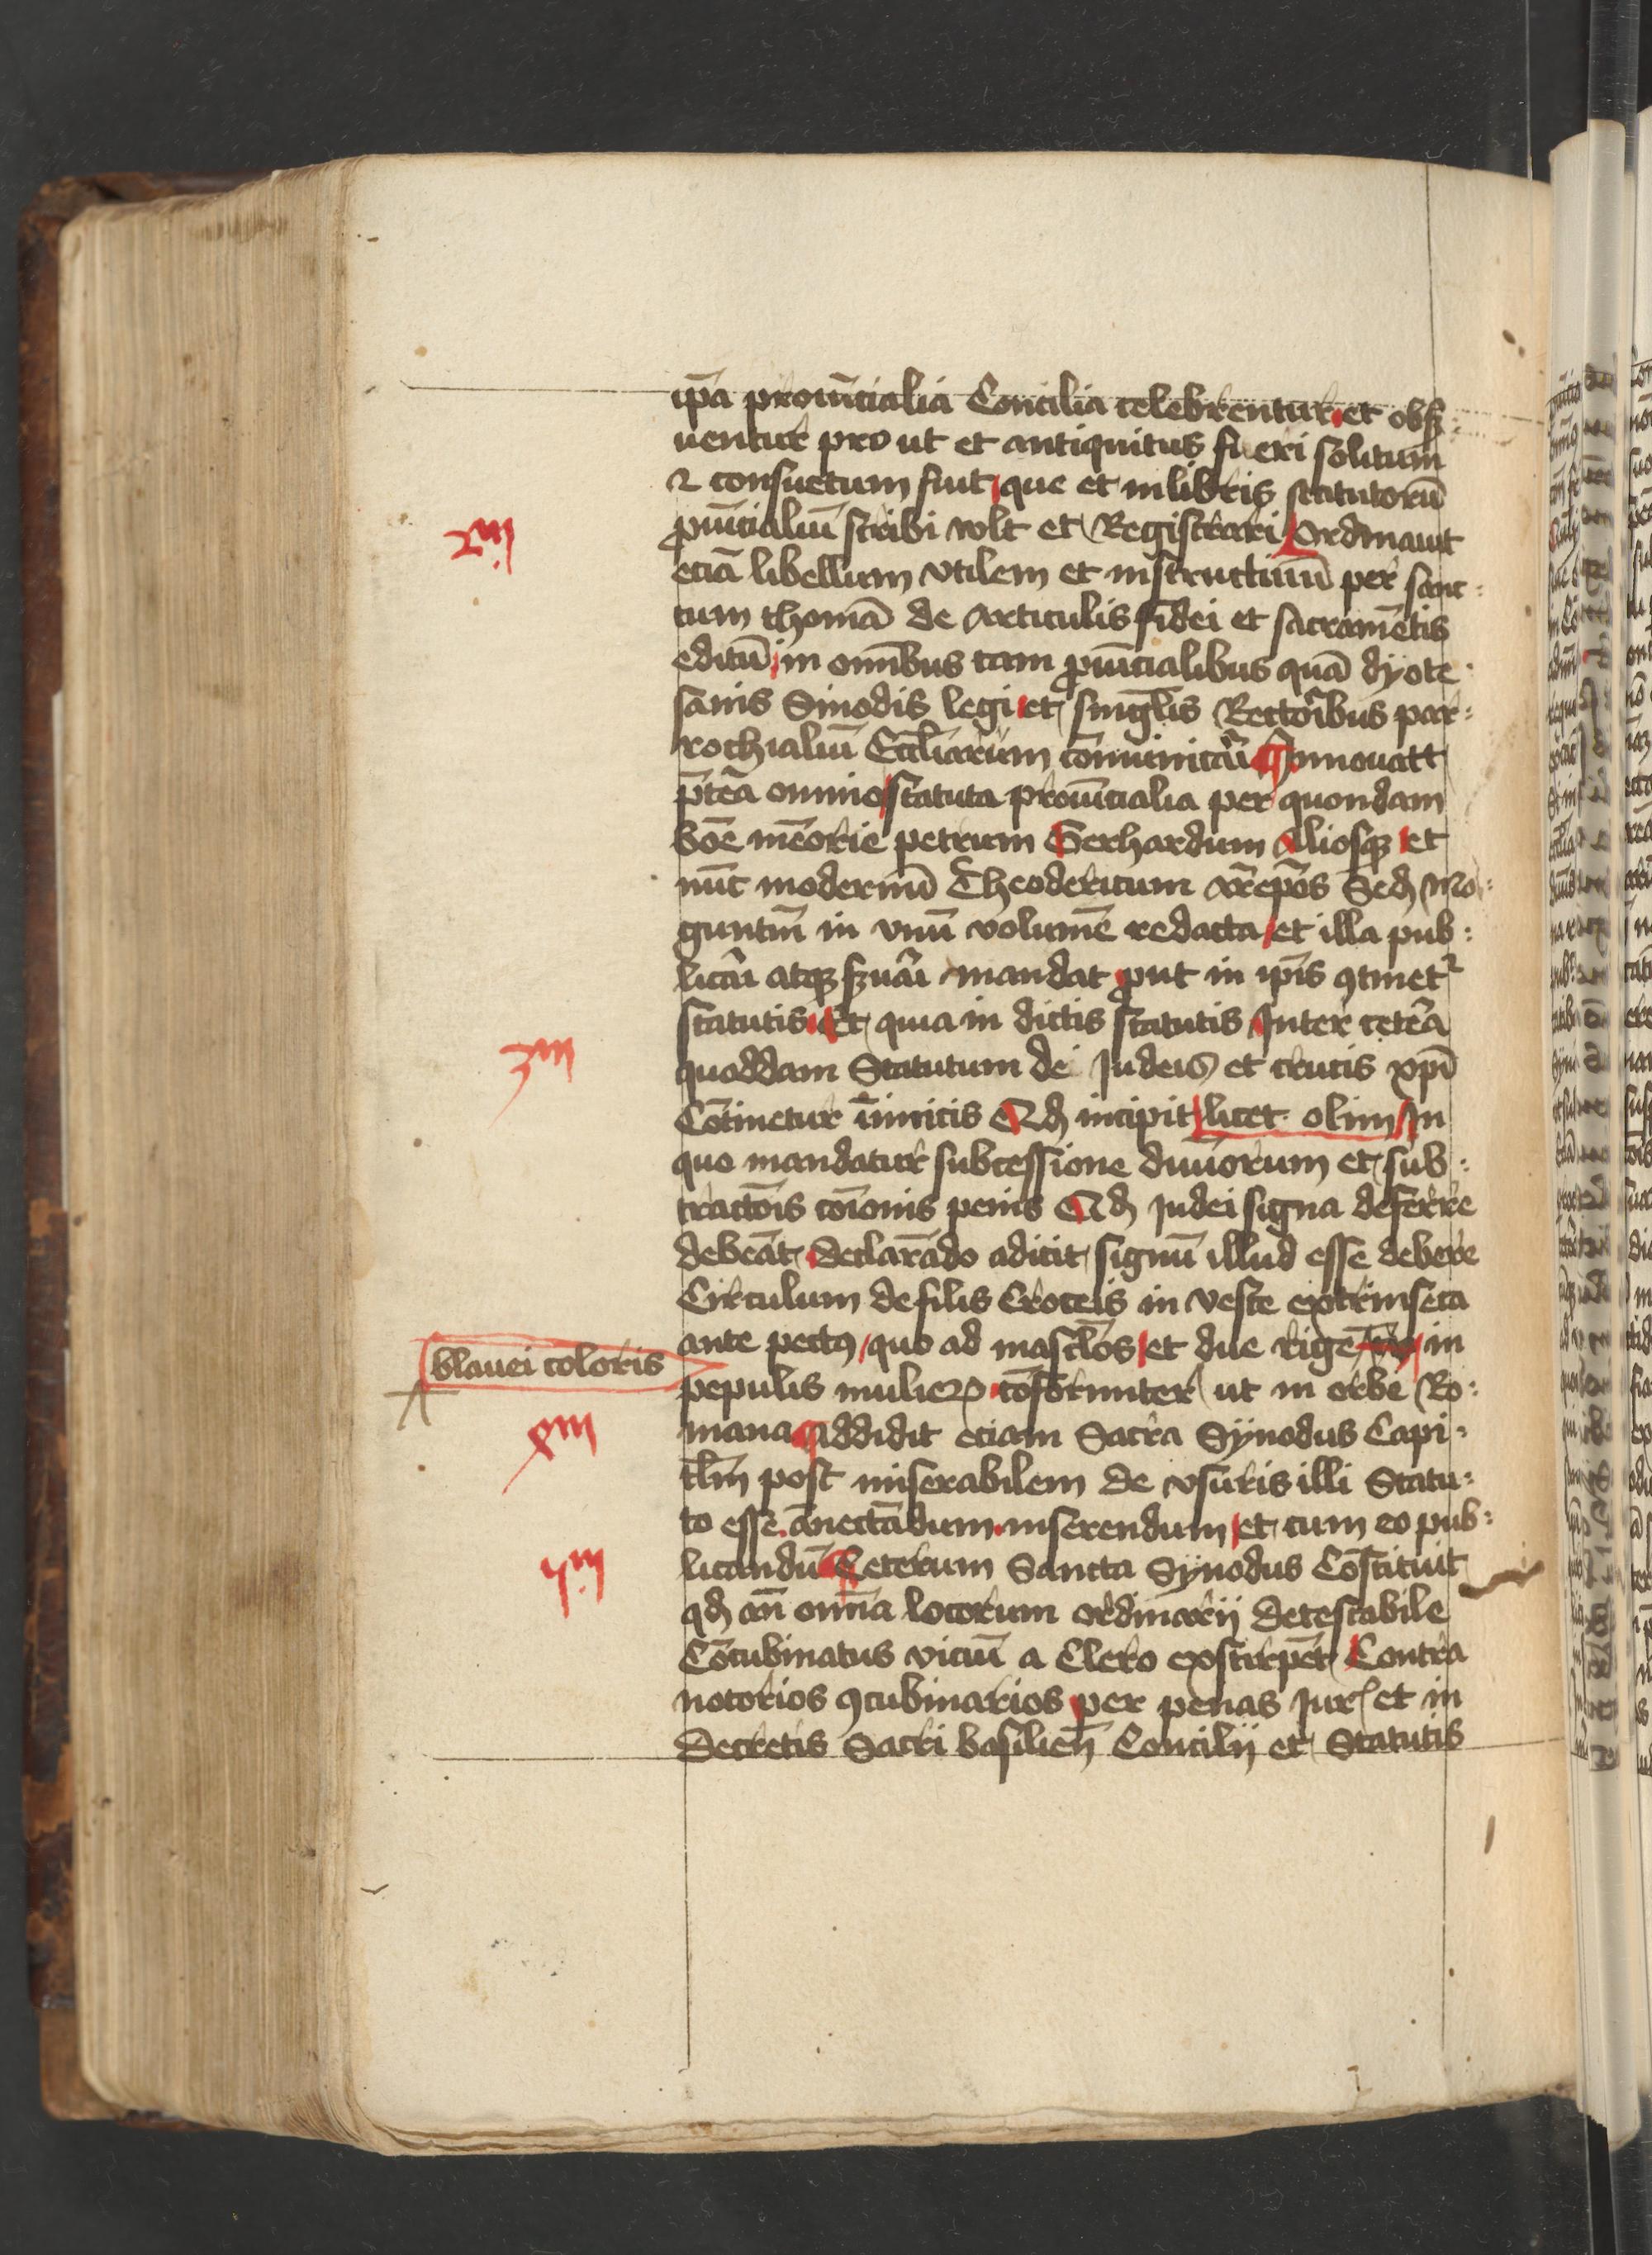 ip̄a prouīcialia Concilia celebrentur et obſẜ:
uentur pro ut et antiquitus fieri solitum
⁊ consuetum fuit que et in libris statutorū
ꝓuīcialiū scribi volt et Registrari Ordinauit
2m
eciā libellum vtilem et instructiuū per sanc:
tum thomā de articulis fidei et sacramētis
editū in omībus tam ꝓuīcialibus quā dyoce:
sanis Sinodis legi et singl̄is Rectoribus par:
rochialiū Eccl̄iarum cōmunicari Innouatt
p̄terā omnio statuta prouīcialia per quondam
bōe mēorie petrum Gerhardum Aliosqꝫ et
nūc modernū Theodericum archiep̄os Sedis Mo:
guntin̄ in vnū volumē redacta et illa pub:
licari atqꝫ ẜuari mandat ꝓut in ip̄is ꝯtinetur
statutis Et quia in dictis statutis Inter cetera
3m
quoddam Statutum de Judeis et crucis xp̄i
Cōtinetur īimicis Qd incipit licet olim In
quo mandatur sub cessione diuinorum et sub:
tractōis cōionis penis Qd Judei signa deferre
debeāt declarādo adicit signū illud esse debere
Circulum de filis Croceis in veste extrinseca
ante pectꝰ quo ad masclos et due rige in
blauei coloris
pepulis mulieꝝ cōformiter ut in orbe Ro:
mana Addidit etiam Sacra Synodus Capi:
4m
tl̄m post miserabilem de vsuris illi Statu:
to esse ānectādum inserendum et cum eo pub:
licandū Ceterum Sancta Synodus Cōstituit
5m
qd om̄ia locorum ordinarij detestabile
Cōcubinatus viciū a Clero exstirpēt Contra
notorios ꝯcubinarios per penas Jur et in
Decretis Sacri basilien̄ Concilij et Statutis